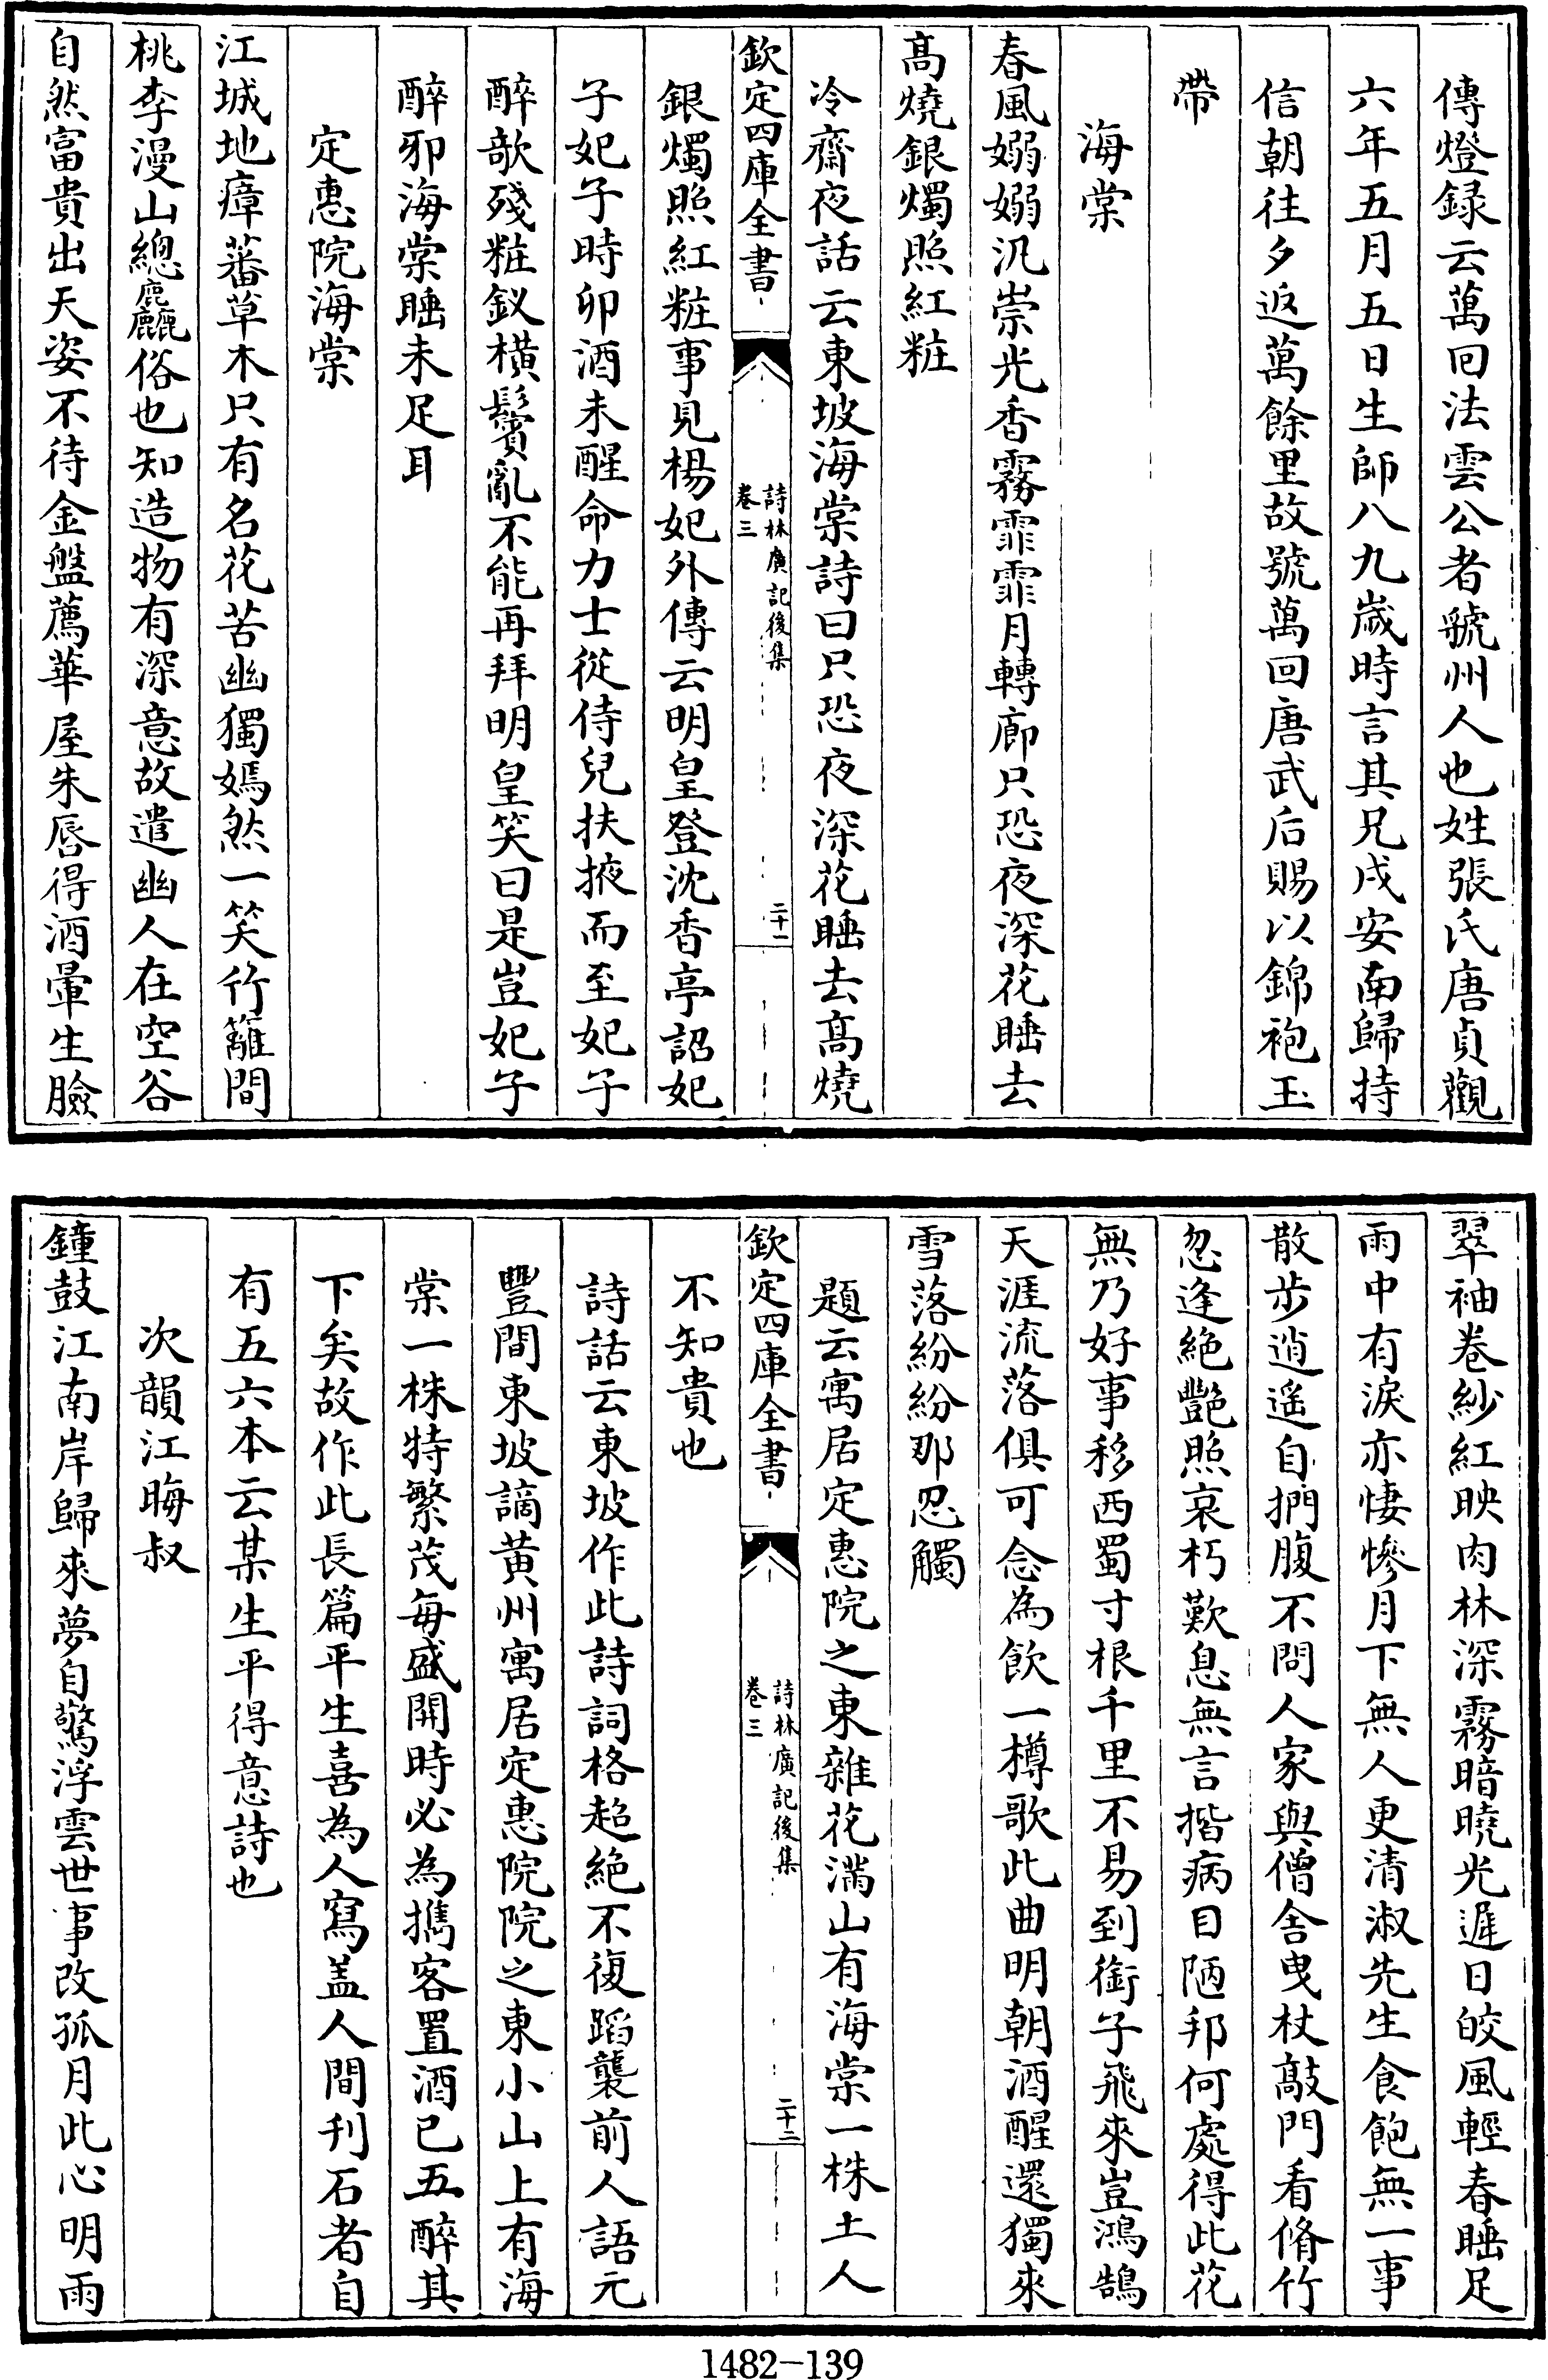 傳燈録云萬回法雲公者虢州人也姓張氏唐貞觀
六年五月五日生師八九歲時言其兄戍安南歸持
信朝往夕返萬餘里故號萬回唐武后賜以錦袍玉
帶
海棠
春風嫋嫋汎崇光香霧霏霏月轉廊只恐夜深花睡去
髙燒銀燭照紅粧
冷齋夜話云東坡海棠詩曰只恐夜深花睡去髙燒
欽定四庫全書
詩林廣記後集
卷三
二十一
銀燭照紅粧事見楊妃外傳云明皇登沈香亭詔妃
子妃子時卯酒未醒命力士從侍兒扶掖而至妃子
醉欹殘粧釵横鬢亂不能再拜明皇笑曰是豈妃子
醉邪海棠睡未足耳
定惠院海棠
江城地瘴蕃草木只有名花苦幽獨嫣然一笑竹籬間
桃李漫山總麤俗也知造物有深意故遣幽人在空谷
自然富貴出天姿不待金盤薦華屋朱唇得酒暈生臉
翠袖卷紗紅映肉林深霧暗曉光遲日皎風輕春睡足
雨中有淚亦悽慘月下無人更清淑先生食飽無一事
散步逍遥自捫腹不問人家與僧舎曳杖敲門看脩竹
忽逢絶艷照衰朽歎息無言揩病目陋邦何處得此花
無乃好事移西蜀寸根千里不易到銜子飛來豈鴻鵠
天涯流落俱可念為飲一樽歌此曲明朝酒醒還獨來
雪落紛紛那忍觸
題云寓居定惠院之東雜花滿山有海棠一株土人
欽定四庫全書
詩林廣記後集
卷三
二十二
不知貴也
詩話云東坡作此詩詞格超絶不復蹈襲前人語元
豐間東坡謫黄州寓居定惠院院之東小山上有海
棠一株特繁茂每盛開時必為攜客置酒已五醉其
下矣故作此長篇平生喜為人寫盖人間刋石者自
有五六本云某生平得意詩也
次韻江晦叔
鐘鼓江南岸歸來夢自驚浮雲世事改孤月此心明雨
1482-139